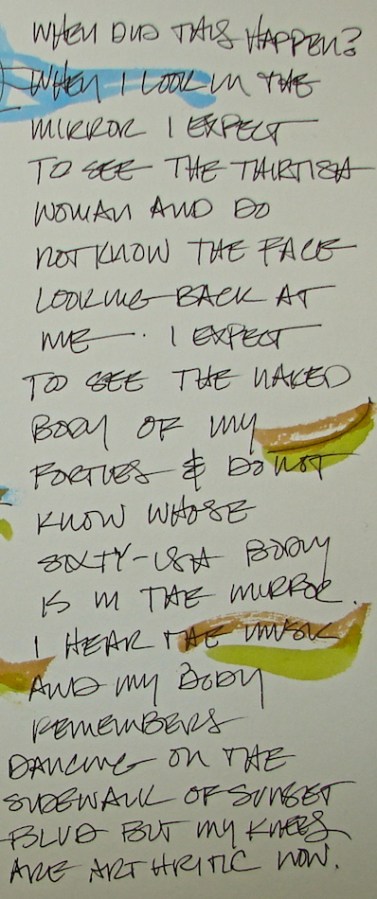 WHEN DID THIS HAPPEN?
WHEN I LOOK IN THE
MIRROR I EXPECT
TO SEE THE THIRTISH
WOMAN AND DO
NOT KNOW THE FACE
LOOKING BACK AT
ME. I EXPECT
TO SEE THE NAKED
BODY OF MY
FORTIES & DO NOT
KNOW WHOSE
SIXTY-ISH BODY
IS IN THE MIRROR.
I HEAR THE MUSIC
AND MY BODY
REMEMBERS
DANCING ON THE
SIDEWALK OF SUNSET
BLVD BUT MY KNEES
ARE ARTHRITIC NOW.